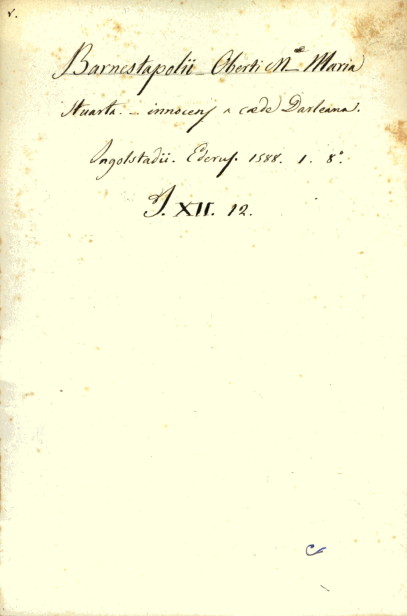 8.
Barnestapolii Oberti M de Maria
Stuarta. - innocens a cæde Darleana.
Ingolstadii. Ederus. 1588. 1. 8°.
J. XII. 12.